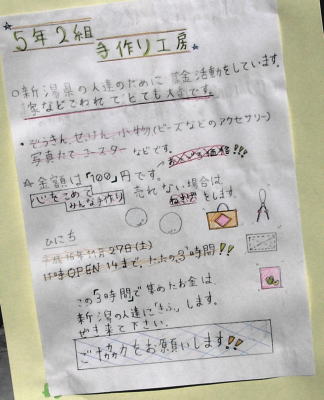 5年2組
手作り工房
○新潟県の人達のために募金活動をしています。
家などこわれてとても大変です。
・ぞうきん、せっけん、小物(ビーズなどのアクセサリー)
写真たて、コースターなどです。
☆金額は「100」円です。
心をこめて
みんな手作り
売れない場合は
ねびきをします。
ひにち
平成16年11月27日(土)
OPEN 14まで、たったの3時間!!
この「3時間」で集めたお金は
新潟の人達に「きふ」します。
ぜひ来て下さい。
ご協力をお願いします!!